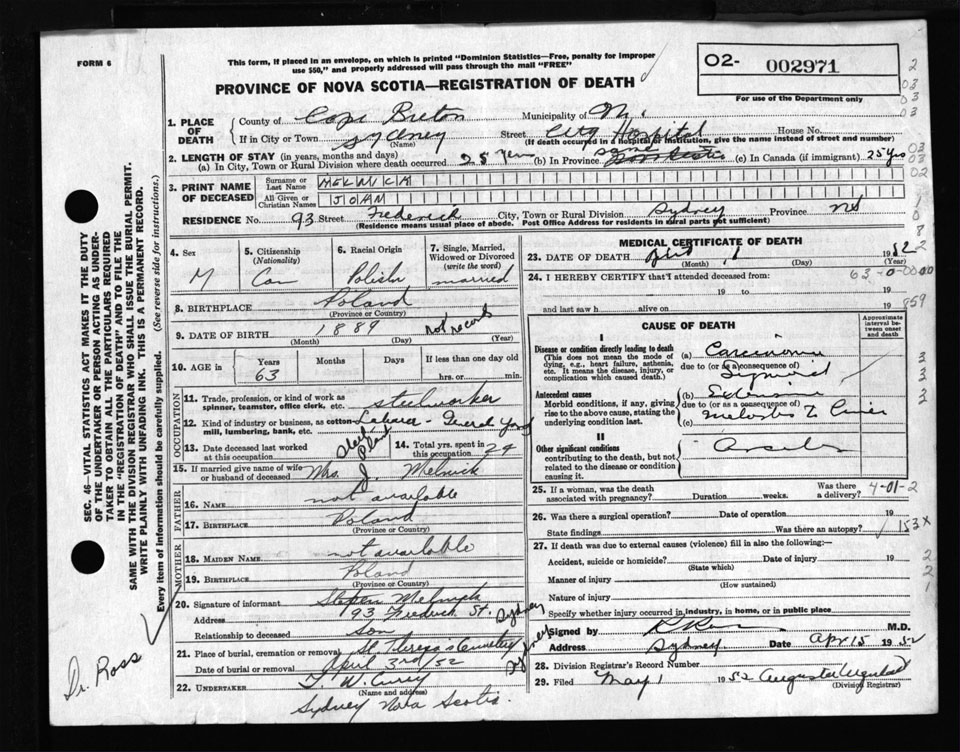 FORM 6
This form, if placed in an envelope, on which is printed "Dominion Statistics—Free, penalty for improper
use $50," and properly addressed will pass through the mail "FREE"
O2- 002971
For use of the Department only
PROVINCE OF NOVA SCOTIA—REGISTRATION OF DEATH
1. PLACE OF DEATH
County of Cape Breton Municipality of
If in City or Town Sydney Street City Hospital House No.
(Name) (If death occurred in a hospital or institution, give the name instead of street and number)
2. LENGTH OF STAY (in years, months and days)
(a) In City, Town or Rural Division where death occurred 25 years (b) In Province same (c) In Canada (if immigrant) 25 yrs
3. PRINT NAME OF DECEASED
Surname or Last Name
All Given or Christian Names
RESIDENCE No. 93 Street Frederick City, Town or Rural Division Sydney Province NS
Residence means usual place of abode. Post Office Address for Residents in rural parts not sufficient)
4. Sex M
5. Citizenship (Nationality) Can
6. Racial Origin Polish
7. Single, Married, Widowed or Divorced (write the word) married
8. BIRTHPLACE Poland
(Province or Country)
9. DATE OF BIRTH 1889 not records
(Month) (Day) (Year)
10. AGE in Years 63 Months Days If less than one day old
hrs. or min.
OCCUPATION
11. Trade, profession, or kind of work as spinner, teamster, office clerk, etc. steelworker
12. Kind of industry or business, as cotton mill, lumbering, bank, etc. Laborer - General Yard
Steel Plant
13. Date deceased last worked at this occupation
14. Total yrs. spent in this occupation 24
15. If married give name of wife or husband of deceased Mrs. J. Melnick
FATHER
16. Name not available
17. Birthplace Poland
(Province or Country)
MOTHER
18. Maiden Name not available
19. Birthplace Poland
(Province or Country)
20. Signature of informant Stephen Melnick
Address 93 Frederick St. Sydney
Relationship to deceased Son
21. Place of burial, cremation or removal St. Theresa's Cemetery Sydney
Date of burial or removal April 3rd/52
22. UNDERTAKER T. W. Curry
(Name and address)
Sydney Nova Scotia.
MEDICAL CERTIFICATE OF DEATH
23. DATE OF DEATH April 1 1952
(Month) (Day) (Year)
24. I HEREBY CERTIFY that I attended deceased from:
19 to 19
and last saw h alive on 19
CAUSE OF DEATH
Approximate interval between onset and death
I
Disease or condition directly leading to death
(This does not mean the mode of dying, e.g., heart failure, asthenia, etc. It means the disease, injury, or complication which caused death.)
(a) Carcinoma
due to (or as a consequence of)
Sigmoid
Antecedent causes
Morbid conditions, if any, giving rise to the above cause, stating the underlying condition last.
(b) Extension
due to (or as a consequence of)
(c)
II
Other significant conditions
contributing to the death, but not related to the disease or condition causing it.
25. If a woman, was the death associated with pregnancy? Duration weeks. Was there a delivery?
4-01-2
26. Was there a surgical operation? Date of operation 19
State findings Was there an autopsy?
153X
27. If death was due to external causes (violence) fill in also the following:—
Accident, suicide or homicide? Date of injury 19
(State which)
Manner of injury
(How sustained)
Nature of injury
Specify whether injury occurred in industry, in home, or in public place
Signed by M.D.
Address Sydney Date Apr 15 1952
28. Division Registrar's Record Number
29. Filed May 1 1952 Augusta
(Division Registrar)
SEC. 46—VITAL STATISTICS ACT MAKES IT THE DUTY
OF THE UNDERTAKER OR PERSON ACTING AS UNDER-
TAKER TO OBTAIN ALL THE PARTICULARS REQUIRED
IN THE "REGISTRATION OF DEATH" AND TO FILE THE
SAME WITH THE DIVISION REGISTRAR WHO SHALL ISSUE THE BURIAL PERMIT.
WRITE PLAINLY WITH UNFADING INK. THIS IS A PERMANENT RECORD.
Every item of information should be carefully supplied. (See reverse side for instructions.)
Dr. Ross